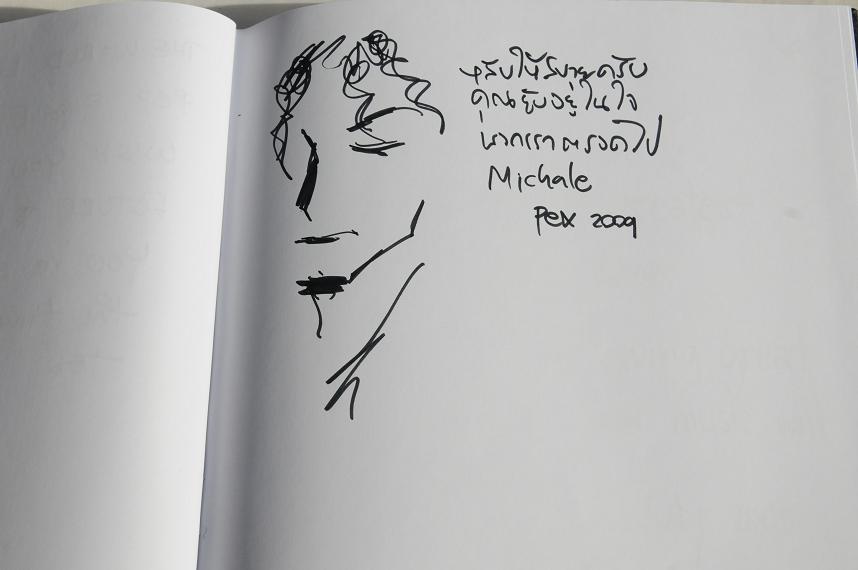 หลับให้สบายครับ
คุณยังอยู่ในใจ
พวกเราตลอดไป
Michale
Pex 2009